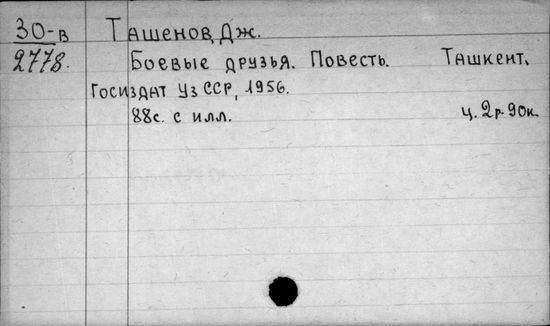 30-в Ташенов, Дж.
2778. Боевые друзья. Повесть. Ташкент.
Госиздат Уз ССР, 1956.
88с. с илл. ц. 2р. 90к.